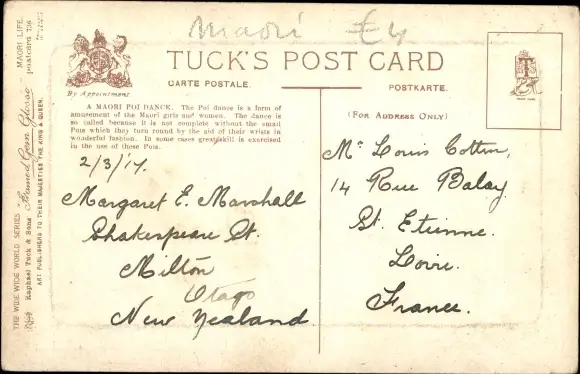 Maori £4
TUCK'S POST CARD
CARTE POSTALE. POSTKARTE.
By Appointment
(FOR ADDRESS ONLY)
A MAORI POI DANCE. The Poi dance is a form of
amusement of the Maori girls and women. The dance is
so called because it is not complete without the small
Pois which they turn round by the aid of their wrists in
wonderful fashion. In some cases great skill is exercised
in the use of these Pois.
2/3/'17.
Margaret E. Marshall
Shakespeare St.
Milton
Otago
New Zealand
Mr Louis Cottin,
14 Rue Balay
St. Etienne.
Loire.
France.
THE WIDE WIDE WORLD SERIES MAORI LIFE.
Raphael Tuck & Sons Framed Gem Glosso postcard
ART PUBLISHERS TO THEIR MAJESTIES THE KING & QUEEN.